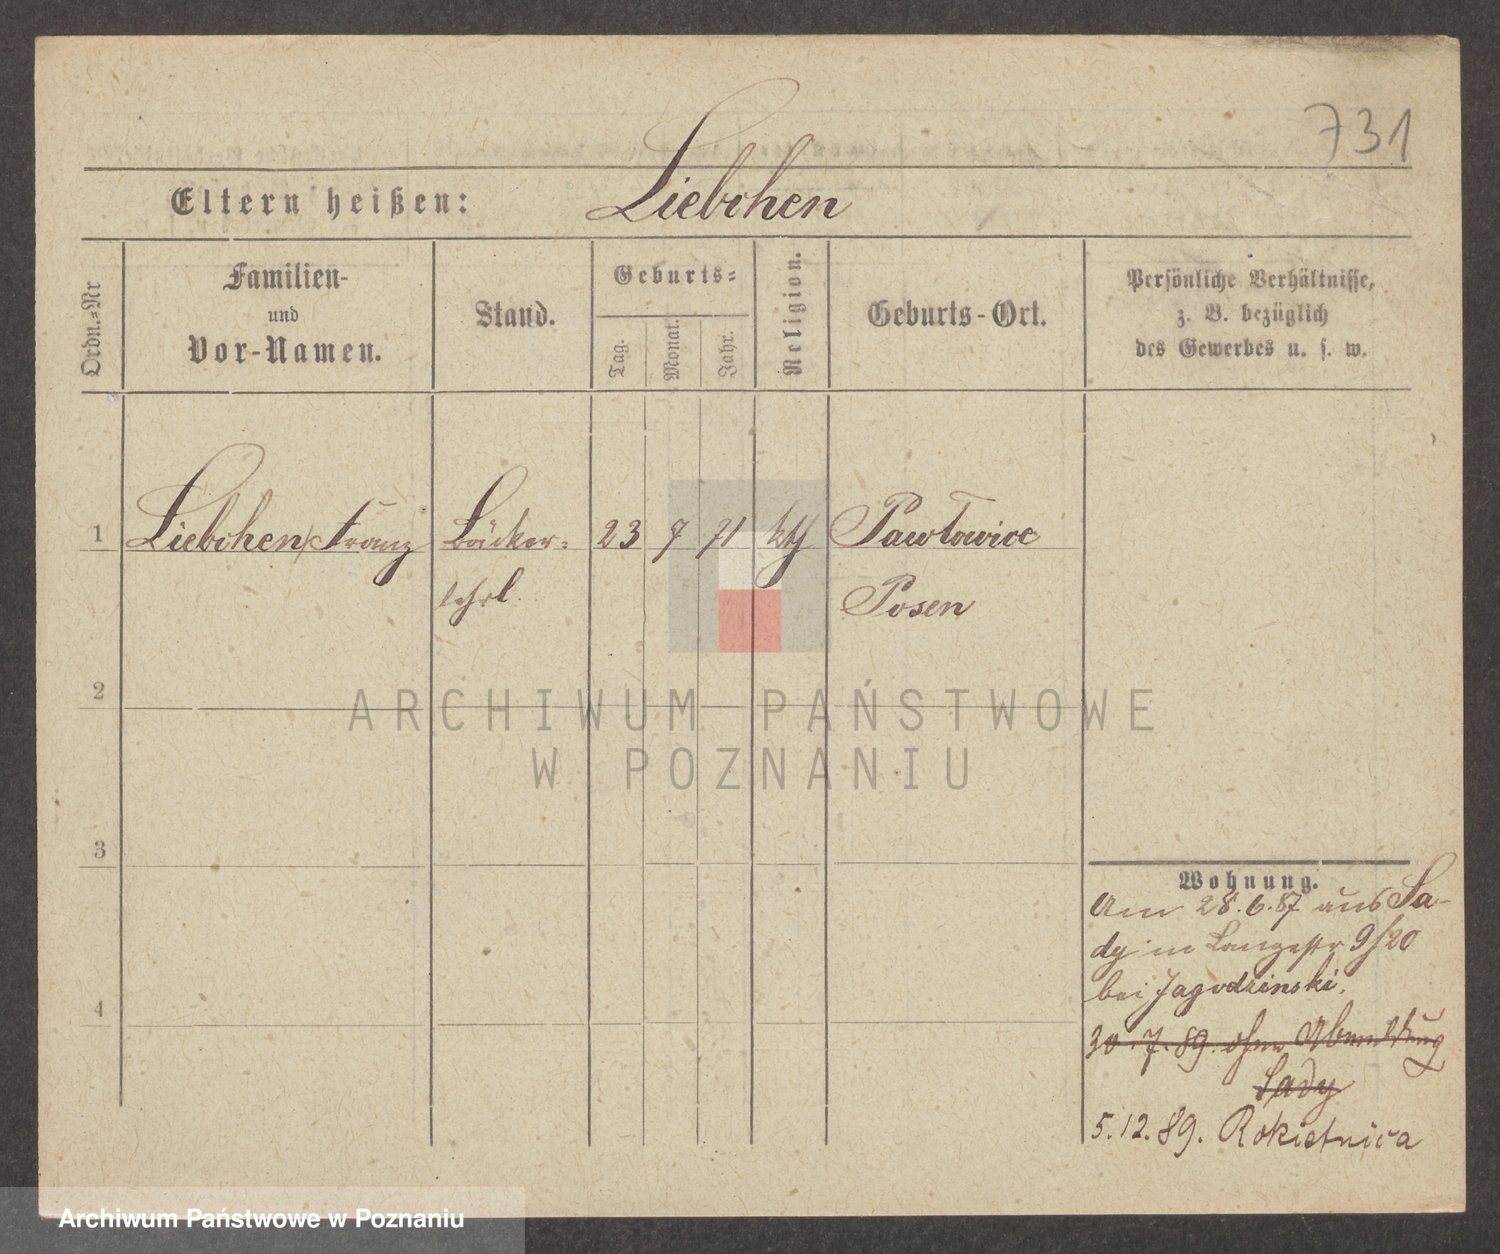 731
Eltern heißen: Liebchen
Ordn.=Nr
Familien-
und
Vor-Namen.
Stand.
Geburts=
Tag.
Monat.
Jahr.
Religion.
Geburts-Ort.
Persönliche Verhältnisse,
z. B. bezüglich
des Gewerbes u. s. w.
1 Liebchen, Franz Bäcker= 23 9 71 kth Pawłowice
lehrl. Posen
2
3
4
ARCHIWUM PAŃSTWOWE
W POZNANIU
Wohnung.
Am 28.6.87 aus Sa-
dy in Langestr 9/20
bei Jagodzinski.
30.7.89. ohne Abmeldung
Sady
5.12.89. Rokietnica
Archiwum Państwowe w Poznaniu